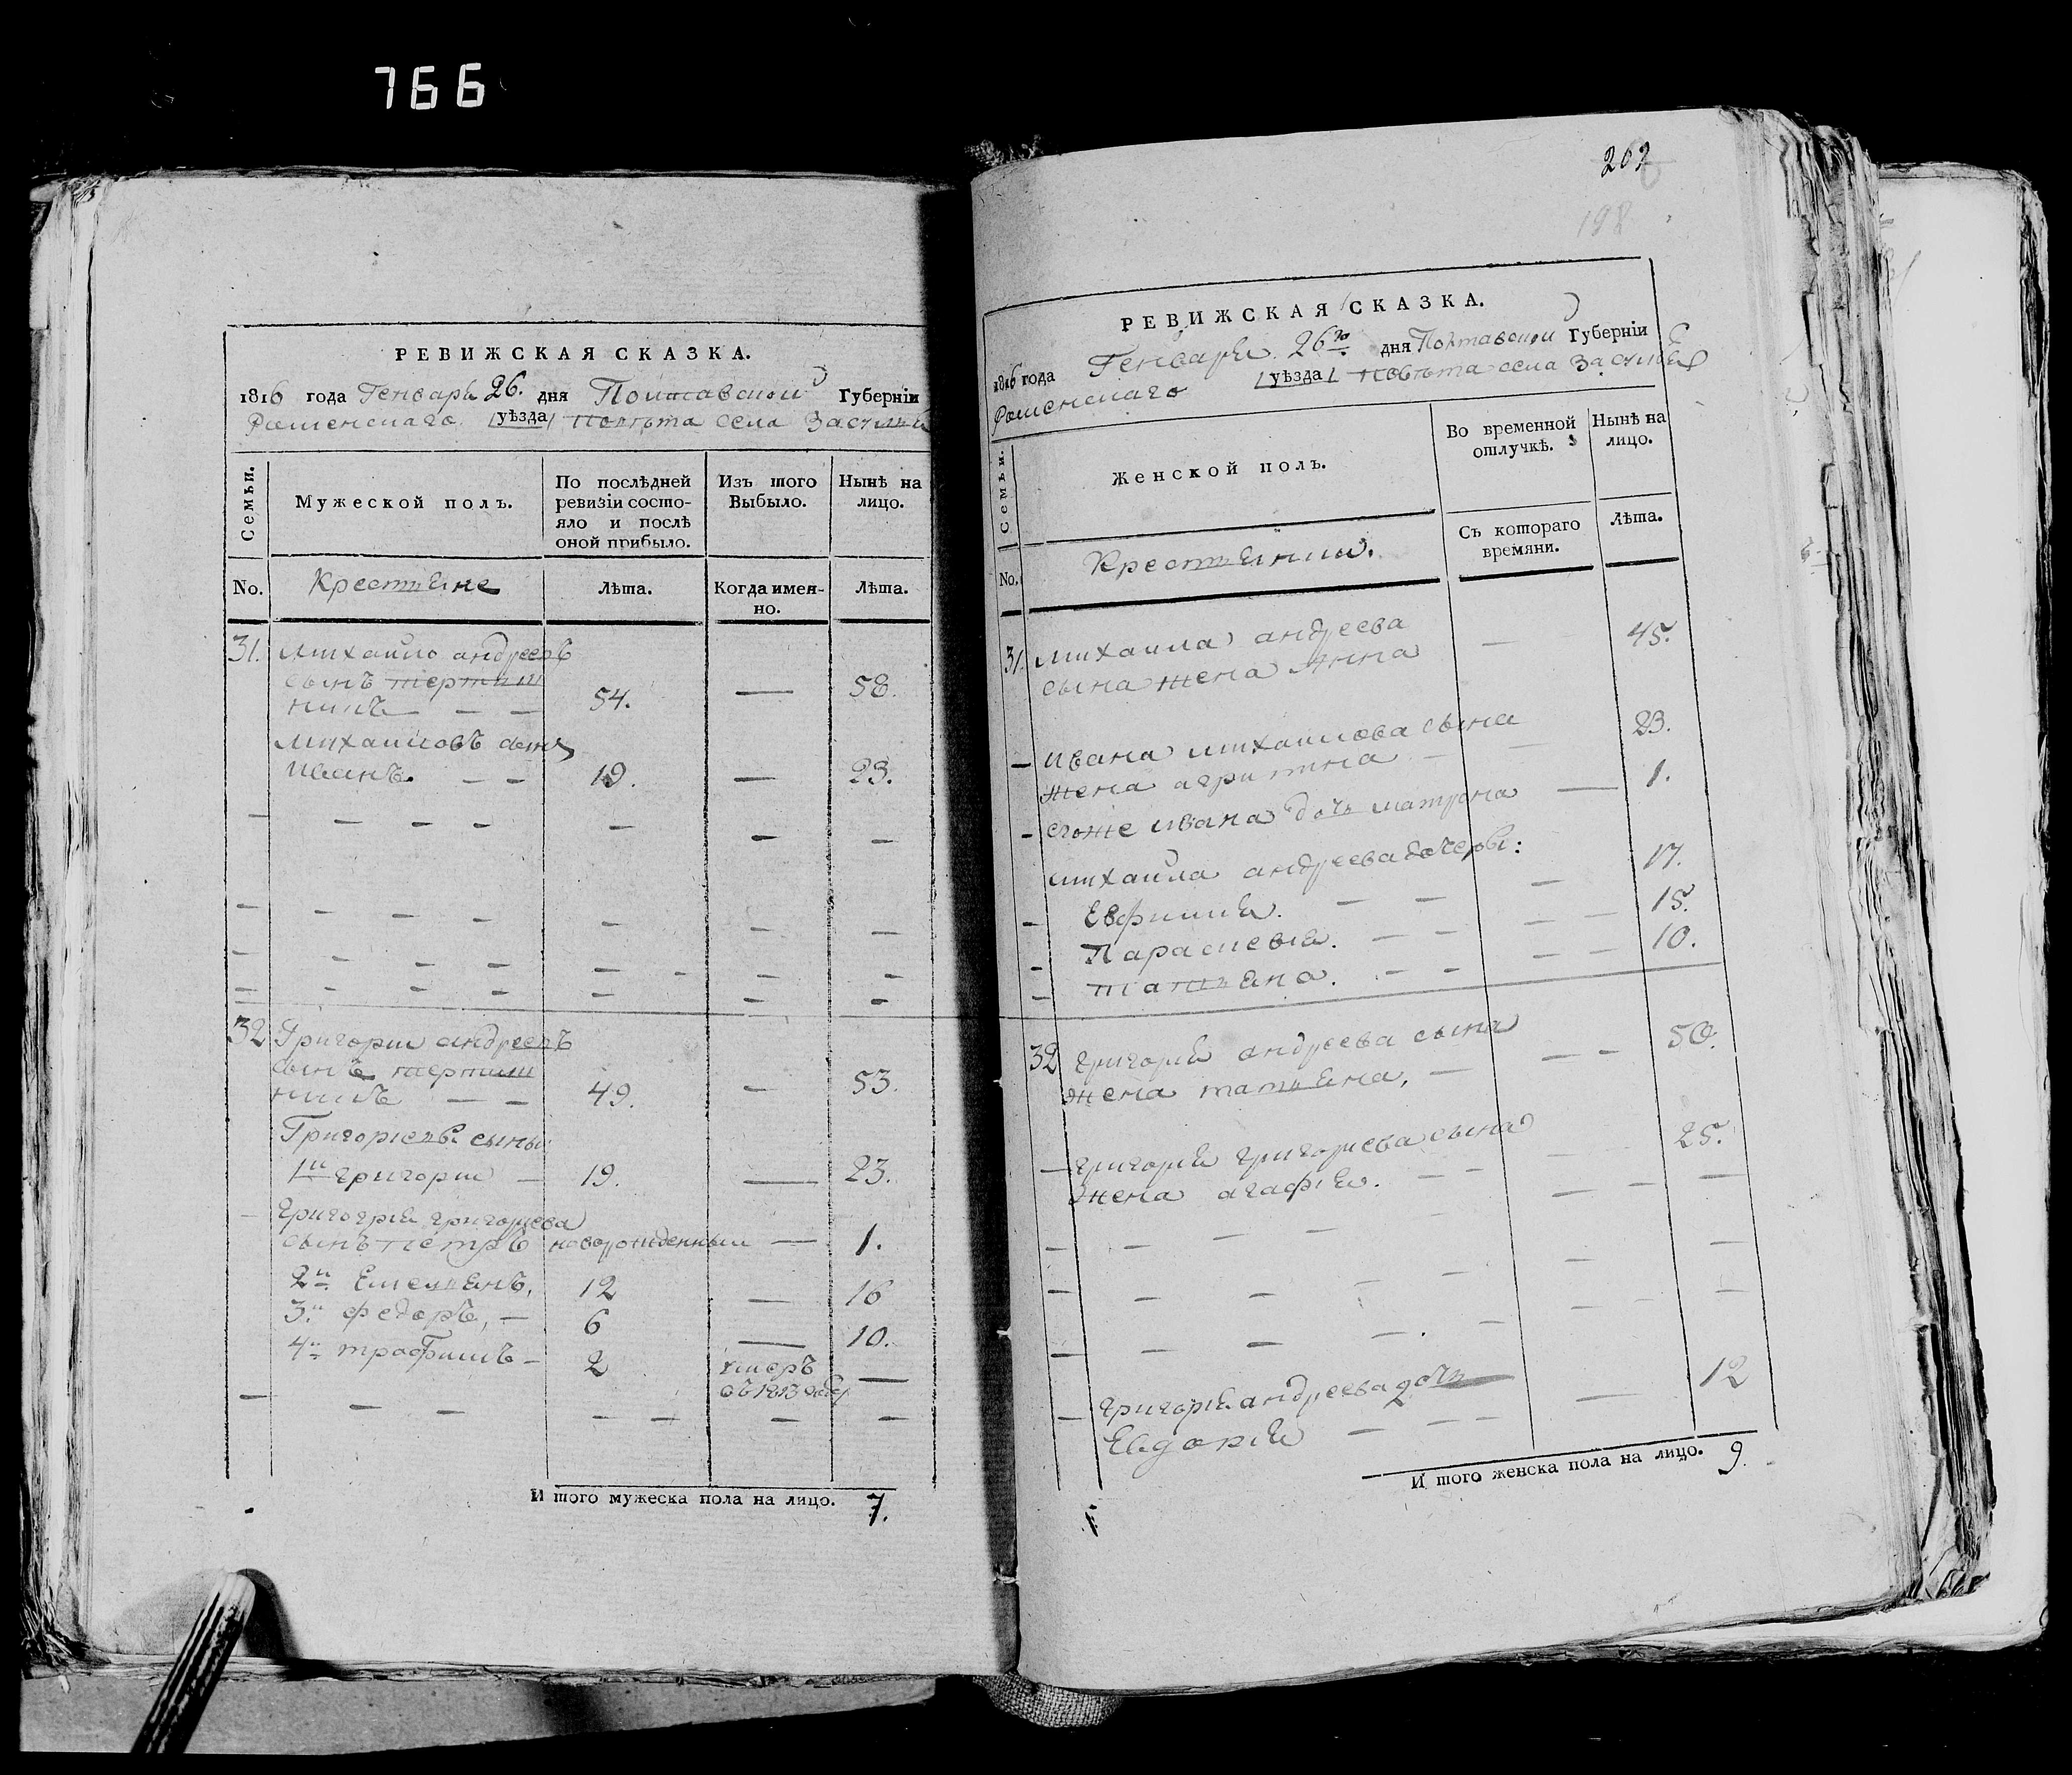 766
РЕВИЖСКАЯ СКАЗКА.
1816 года Генваря 26. дня Полтавской Губернїи
Роменскаго /уѣзда/ повѣта села Засулья
Семьи.
Мужеской полъ.
По послѣдней ревизїи состо-
яло и послѣ
оной прибыло.
Изъ того
Выбыло.
Нынѣ на
лицо.
No.
Крестьяне
Лѣта.
Когда имен-
но.
Лѣта.
31. Михайло андреевъ
сынъ
54. — 58.
Михайловъ сынъ
Иванъ. — — 19. — 23.
32 Григорий андреевъ
сынъ
— — 49. — 53.
Григориевы сыны
1й григорий — 19. — 23.
григория григориева
сынъ петръ новорожденный — 1.
2й Емельянъ, 12 — 16
3й федоръ, — 6 — 10.
4й трофимъ — 2 умеръ —
въ 1813 году
И того мужеска пола на лицо. 7.
202
198
РЕВИЖСКАЯ СКАЗКА.
1816 года Генваря 26го дня Полтавской Губернїи
Роменскаго /уѣзда/ повѣта села Засулья
Семьи.
Женской полъ.
Во временной
отлучкѣ.
Нынѣ на
лицо.
Съ котораго
времяни.
Лѣта.
No.
Крестьянки.
31. михайла андреева
сына жена Анна — 45.
— ивана михайлова сына
жена агрипина — — 23.
— егоже ивана дочь матрона — 1.
михайла андреева дочеры:
— Евфимия. — — — 17.
— Параскевия. — — — — 15.
— татьяна. — — — — 10.
32 григория андреева сына
жена татьяна, — — — 50.
— григория григориева сына
жена агафия. — — 25.
— григория андреева дочь
Евдокия — — — 12
И того женска пола на лицо. 9.